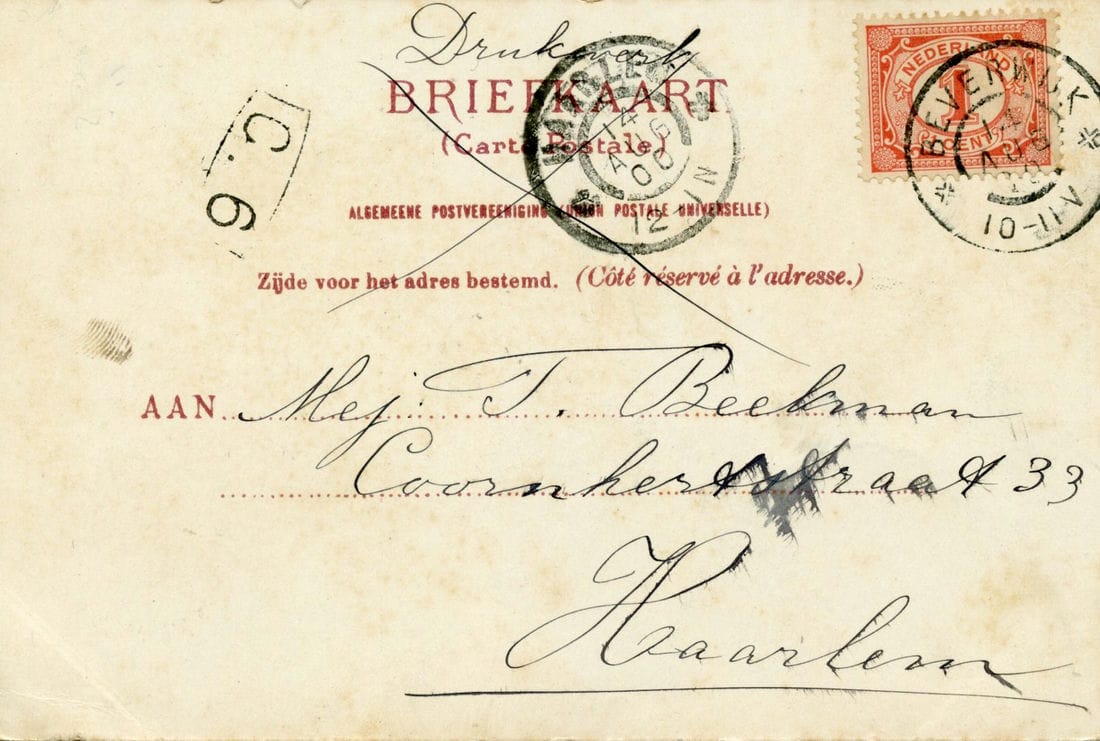 Drukwerk
BRIEFKAART.
(Carte Postale)
ALGEMEENE POSTVEREENIGING (UNION POSTALE UNIVERSELLE)
Zijde voor het adres bestemd. (Côté réservé à l'adresse.)
NEDERLAND
1
CENT
BEVERWIJK
14
AUG
10-11V
HAARLEM
14
AUG
00
12-1N
C:6
AAN Mej. T. Beekman
Coornhertstraat 33
Haarlem